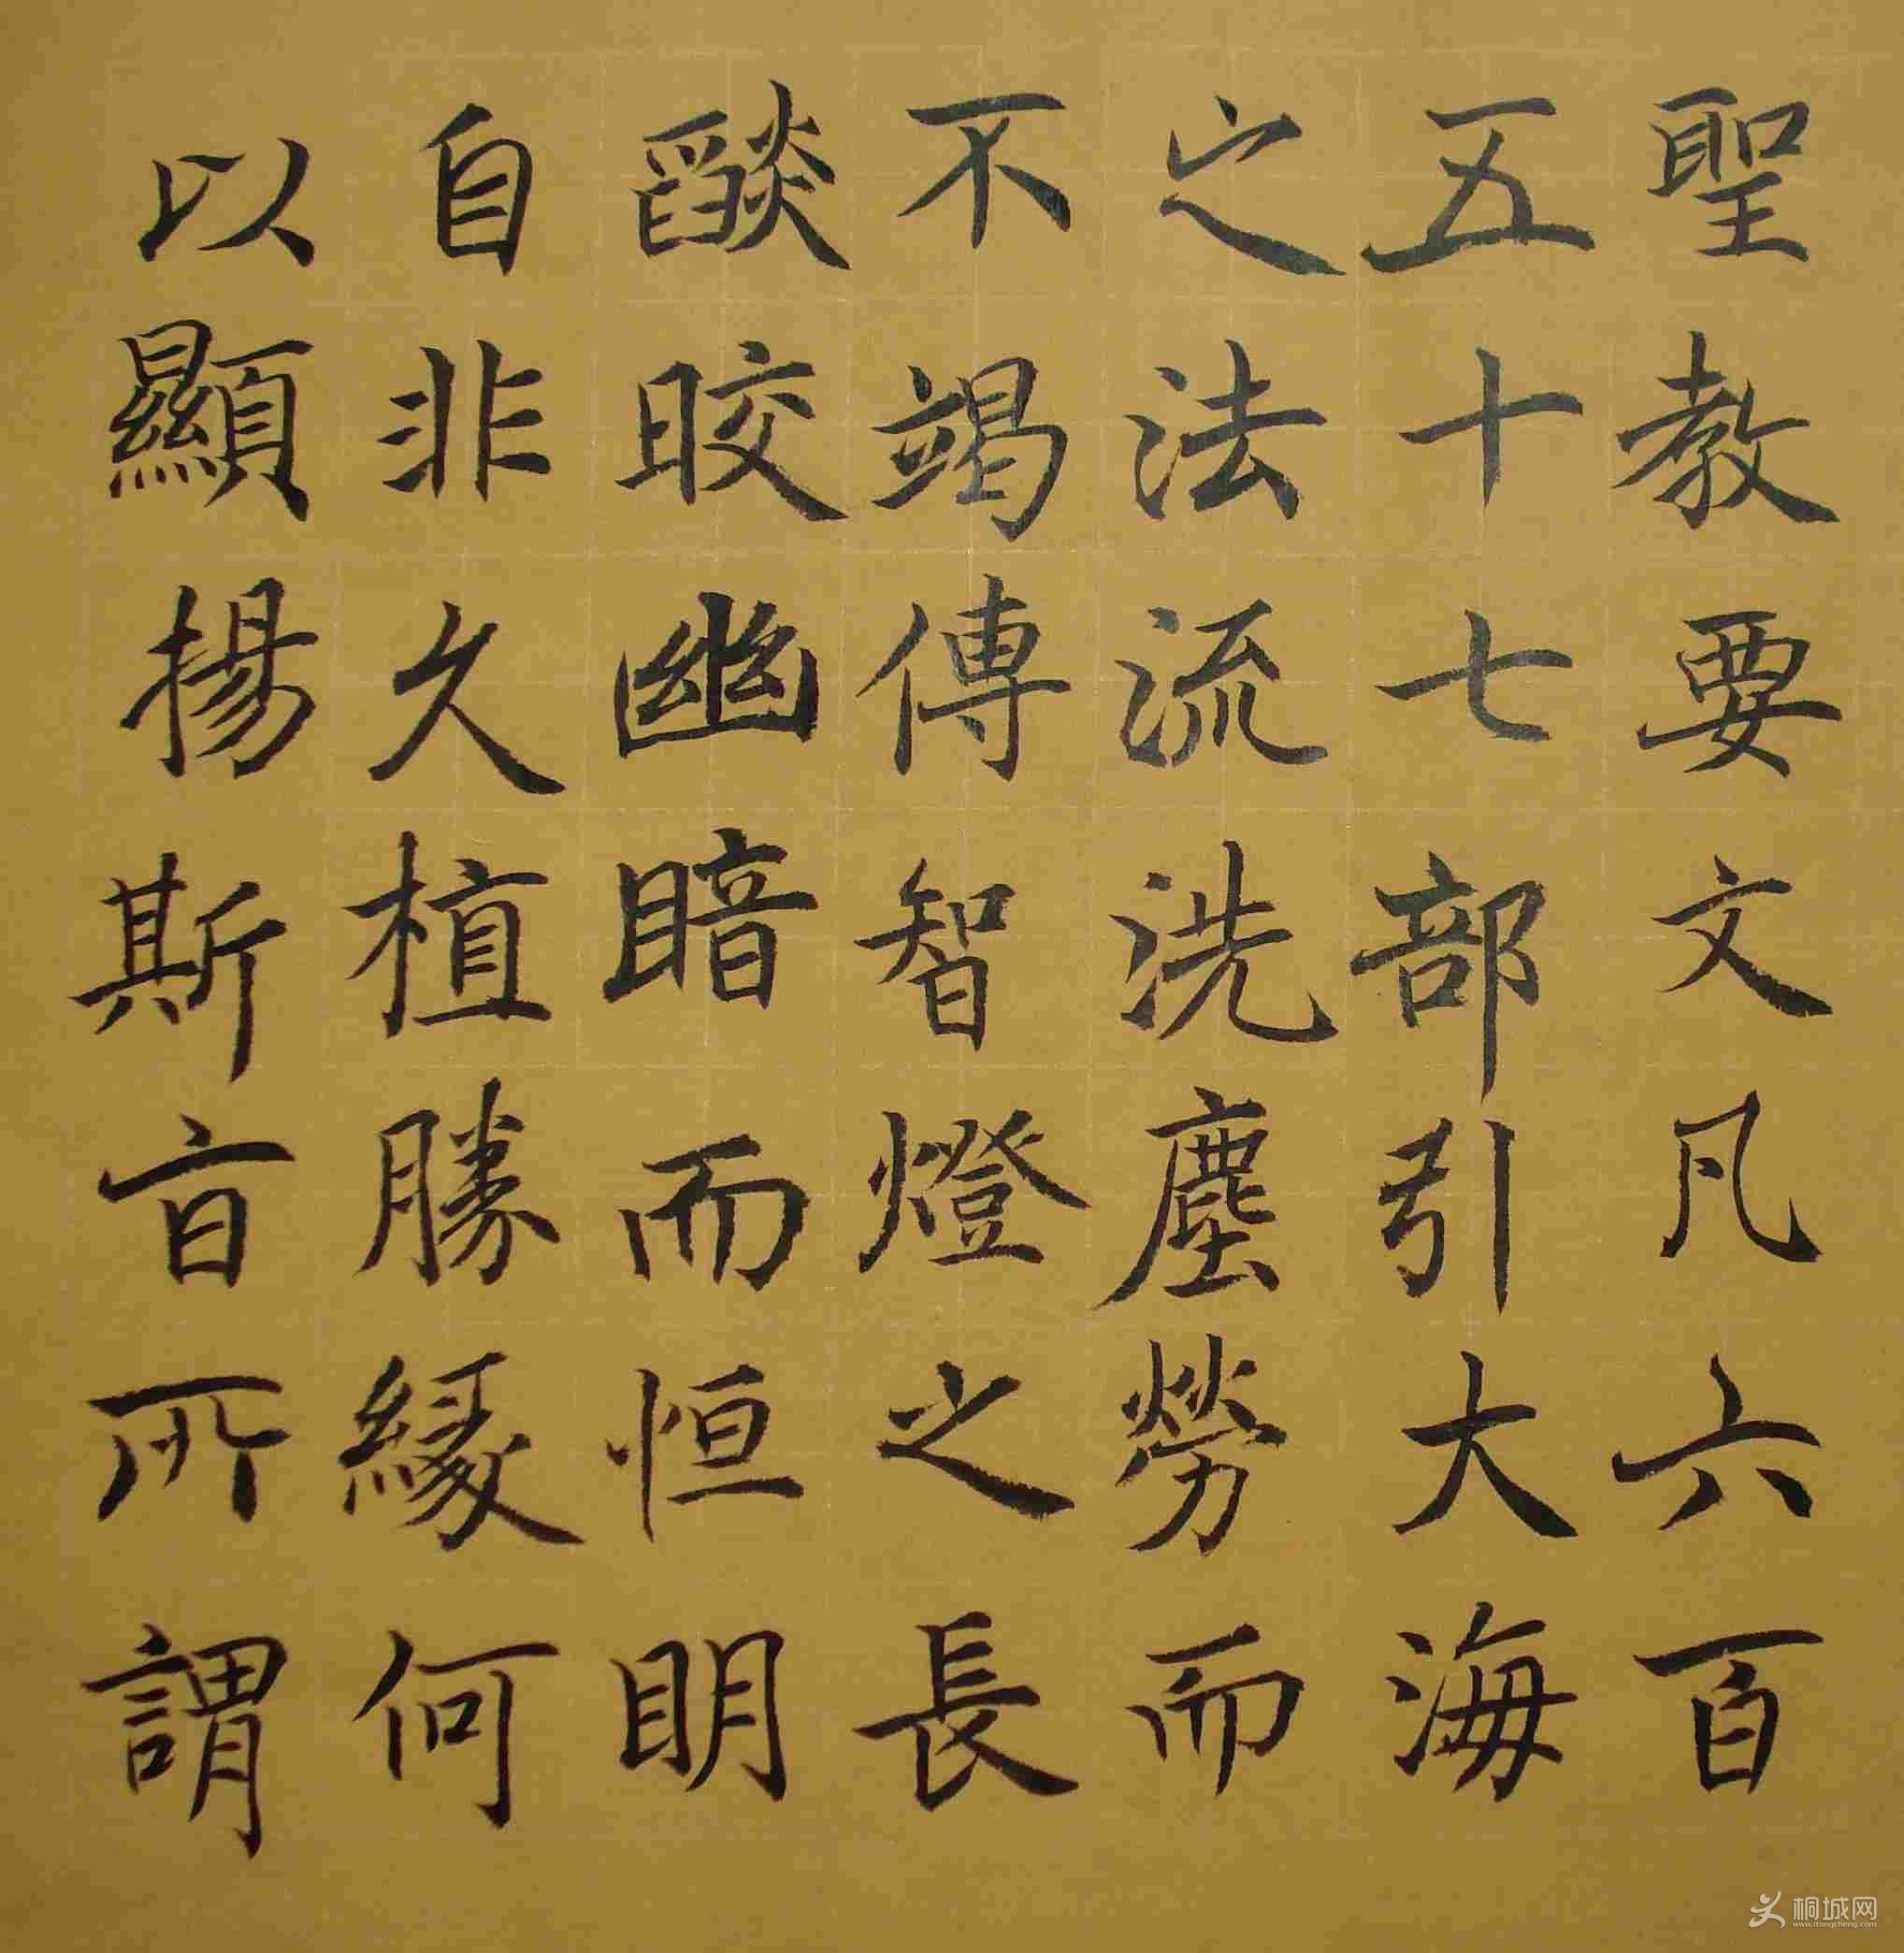 聖教要文凡六百
五十七部引大海
之法流洗塵勞而
不竭傳智燈之長
燄皎幽暗而恒明
自非久植勝緣何
以顯揚斯旨所謂
桐城网
www.itongcheng.com